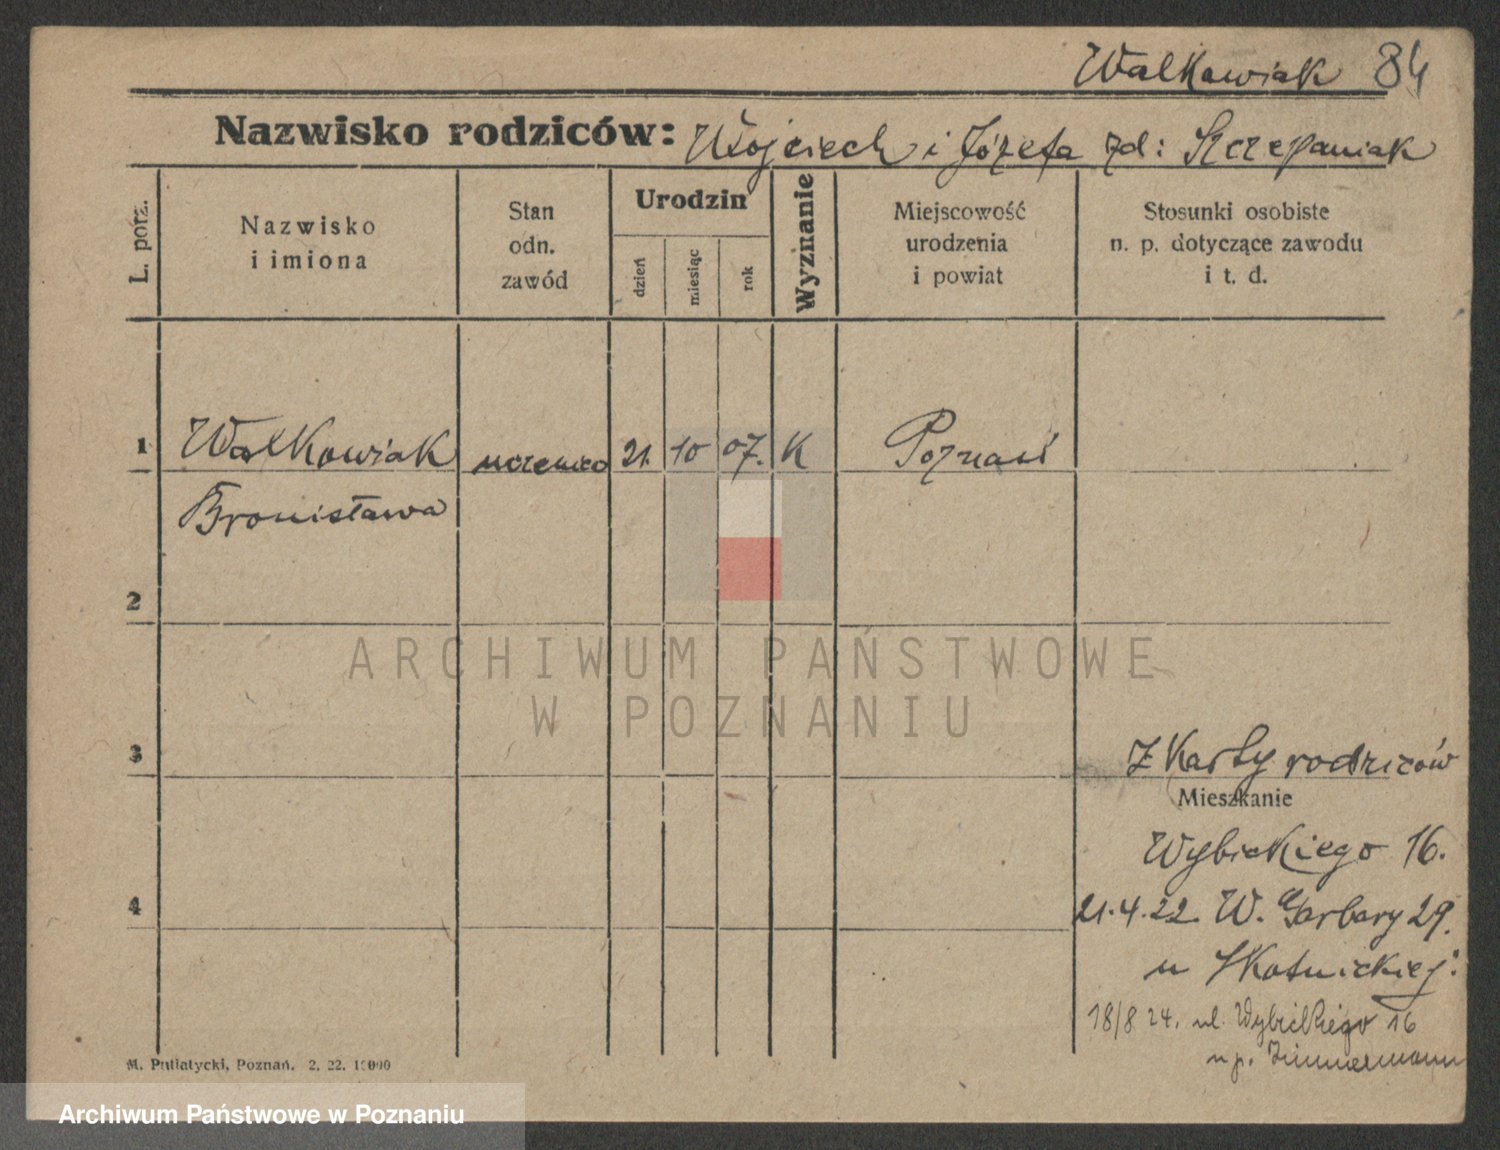 Walkowiak 84
Nazwisko rodziców: Wojciech i Józefa zd: Szczepaniak
L. porz.
Nazwisko
i imiona
Stan
odn.
zawód
Urodzin
dzień
miesiąc
rok
Wyznanie
Miejscowość
urodzenia
i powiat
Stosunki osobiste
n. p. dotyczące zawodu
i t. d.
1 Walkowiak uczenica 21. 10 07. K Poznań
Bronisława
2
ARCHIWUM PAŃSTWOWE
W POZNANIU
3
Z Karty rodziców
Mieszkanie
Wybickiego 16.
4
21.4.22 W. Garbary 29.
u Skotnickiej:
18/8 24. ul. Wybickiego 16
u p. Zimmermann
M. Putiatycki, Poznań. 2. 22. 10000
Archiwum Państwowe w Poznaniu